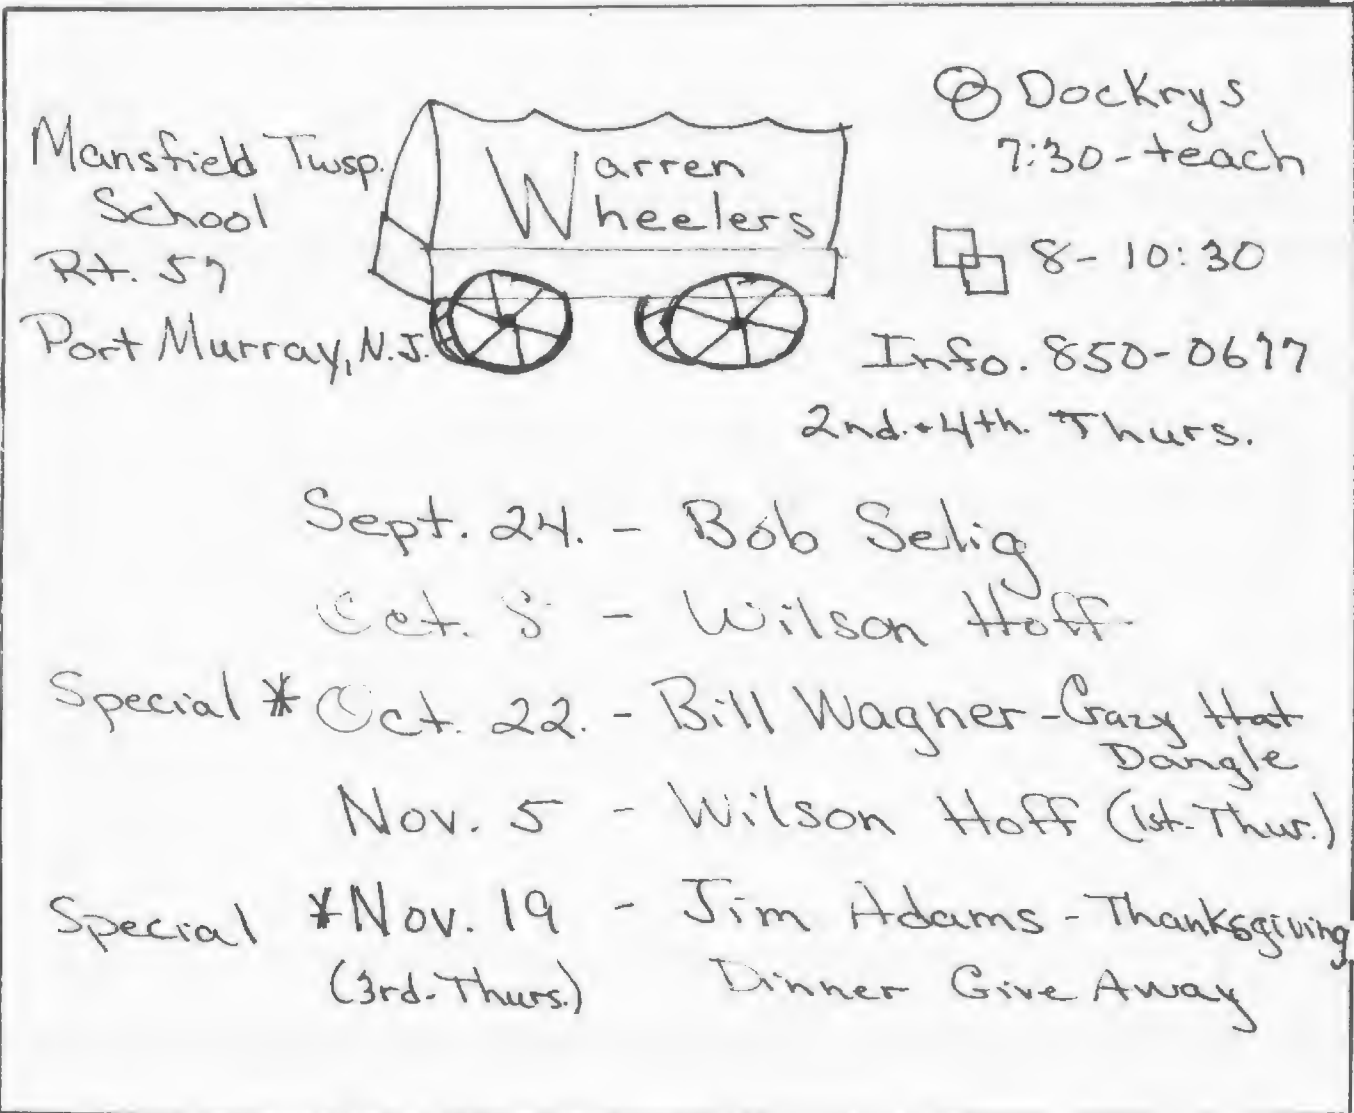 Mansfield Twsp.
School
Rt. 57
Port Murray, N.J.
Warren
Wheelers
Dockrys
7:30-teach
8-10:30
Info. 850-0677
2nd.+4th. Thurs.
Sept. 24. - Bob Selig
Oct. 8 - Wilson Hoff
Special * Oct. 22. - Bill Wagner - Crazy Hat
Dangle
Nov. 5 - Wilson Hoff (1st-Thur.)
Special * Nov. 19 - Jim Adams - Thanksgiving
(3rd-Thurs.) Dinner Give Away